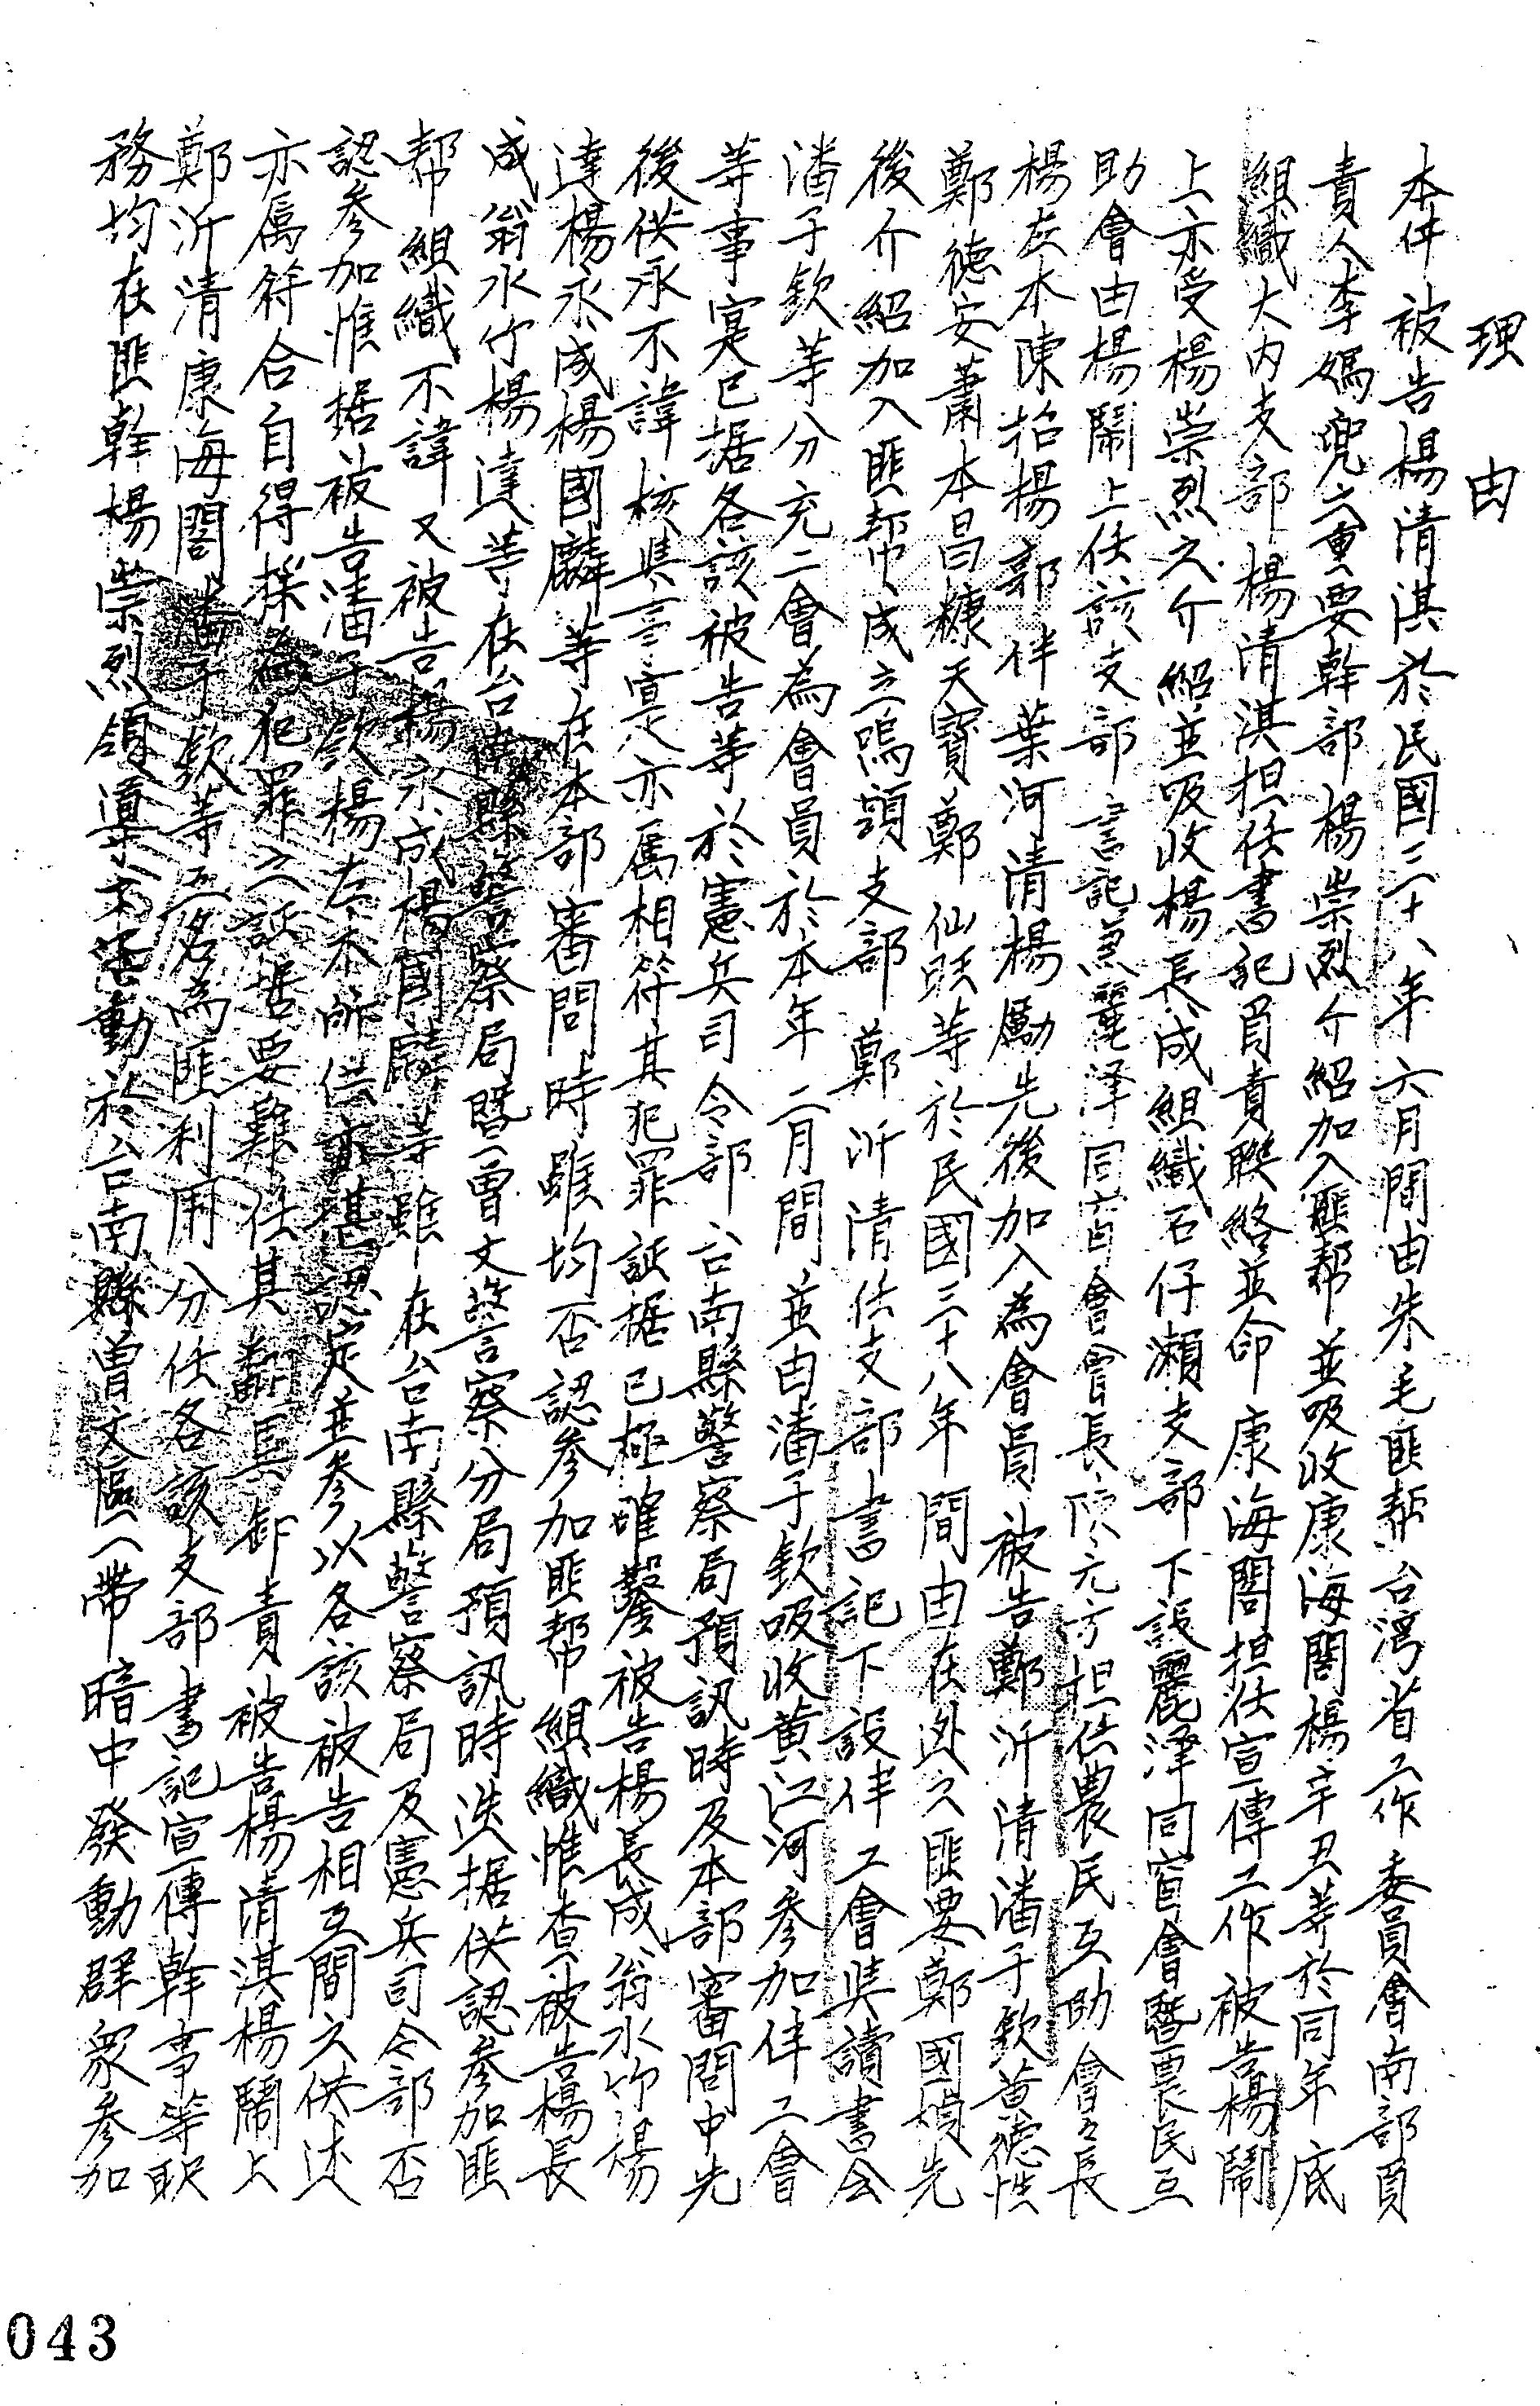 理由
本件被告楊清淇於民國三十八年六月間由朱毛匪幫台灣省工作委員會南部負
責人李媽兜之重要幹部楊崇烈介紹加入匪帮並吸收康海閣楊辛丑等於同年底
組織大內支部楊清淇担任書記負責聯絡並命康海閣担任宣傳工作被告楊鬧
上亦受楊崇烈之介紹並吸收楊長成組織石仔瀨支部下設麗澤同窗會暨農民互
助會由楊鬧上任該支部書記兼麗泽同窗會會長陳元方担任農民互助會々長
楊左本陳招楊郭伴葉河清楊勵先後加入為會員被告鄭沂清潘子欽黃德性
鄭德安蕭本昌糠天寶鄭仙旺等於民國三十八年間由在逃之匪要鄭國楨先
後介紹加入匪帮成立嗚頭支部鄭沂清任支部書記下設伴工會與讀書会
潘子欽等分充二會為會員於本年二月間並由潘子欽吸收黃江河參加伴工會
等事寔已据各該被告等於憲兵司令部台南縣警察局預訊時及本部審問中先
後供承不諱核與事寔亦属相符其犯罪証据已極確鑿被告楊長成翁水竹楊
達楊永成楊國麟等在本部審問時雖均否認參加匪帮組織惟查被告楊長
成翁水竹楊達等在台南縣警察局暨曾文警察分局預訊時迭据供認參加匪
帮組織不諱又被告楊永成楊國麟等雖在台南縣警察局及憲兵司令部否
認參加惟据被告潘子欽楊左本所供亦堪認定並參以各該被告相互間之供述
亦属符合自得採為犯罪之証据要難任其翻異卸責被告楊清淇楊鬧上
鄭沂清康海閣潘子欽等五名為匪利用分任各該支部書記宣傳幹事等职
務均在匪幹楊崇烈領導之下活動於台南縣曾文區一帶暗中發動群衆參加
043